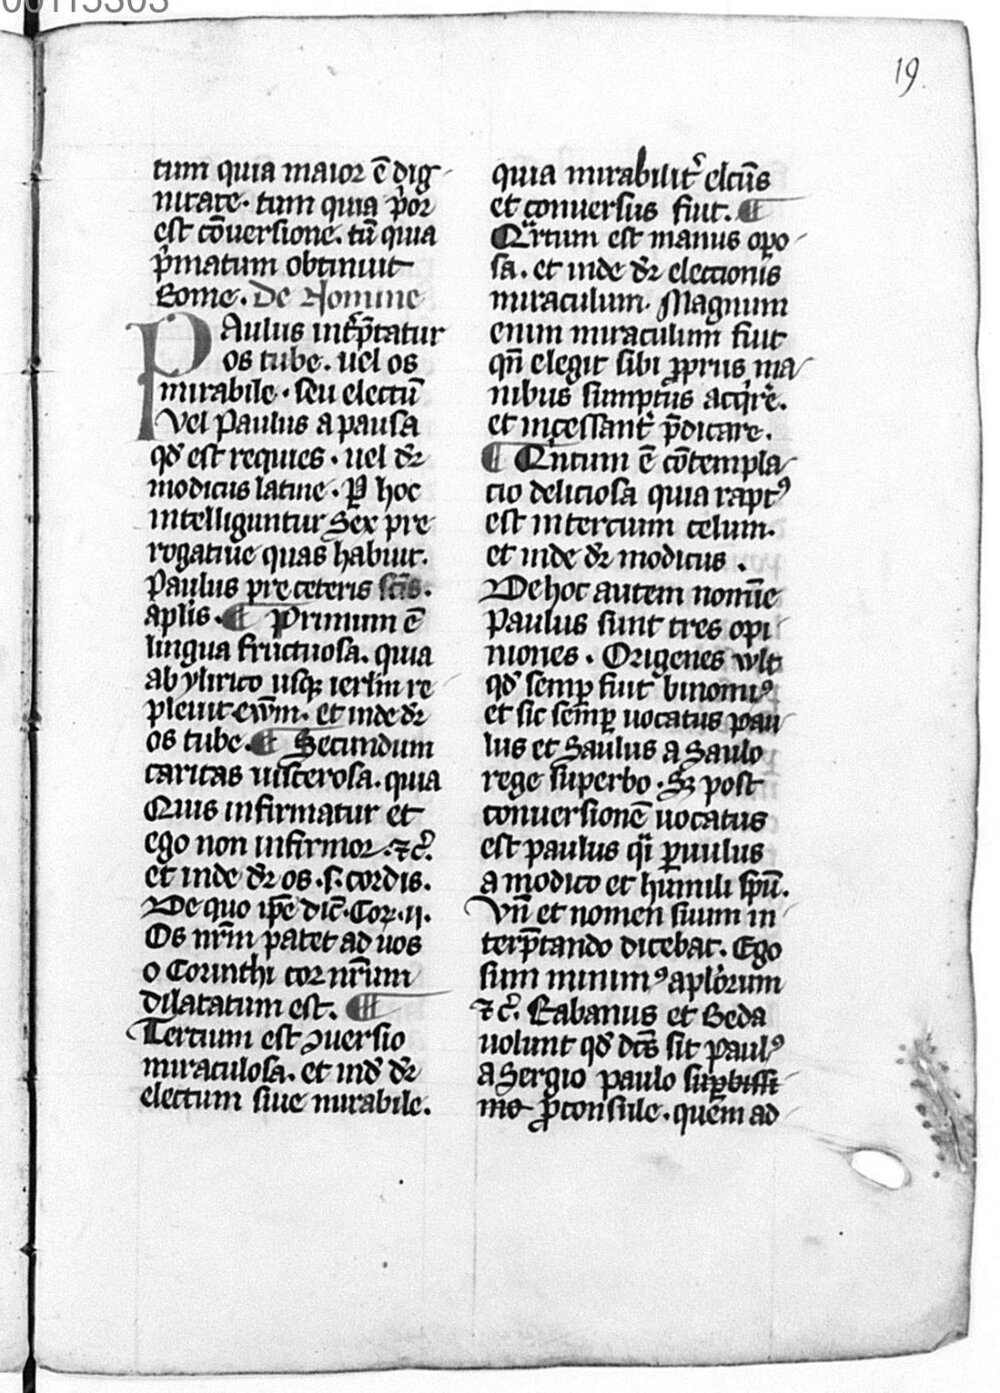 00115303
19.
tum quia maior ē dig
nitate. tum quia p̓or
est cōuersione. tū quia
p̓matum obtinuit
Rome. De Nomine
Paulus int̓p̄tatur
os tube. uel os
mirabile. seu electū
Vel Paulus a pausa
qd̓ est requies. uel dr̄
modicus latine. Ꝑ hoc
intelliguntur Sex pre
rogatiue quas habuit.
Paulus pre ceteris sc̄is.
apl̄is. ¶ Primum ē
lingua fructuosa. quia
ab ylirico usqꝫ ierl̄m re
pleuit ew̄m. et inde dr̄
os tube. ¶ Secundum
caritas uiscerosa. quia
Quis infirmatur et
ego non infirmor. ⁊c̓.
et inde dr̄ os .s. cordis.
De quo ip̄e dic̄. Coꝝ. ij.
Os nr̄m patet ad uos
o Corinthi cor nr̄um
dilatatum est. ¶
Tertium est ꝯuersio
miraculosa. et ind̓ dr̄
electum siue mirabile.
quia mirabilit̓ elc̄us
et conuersus fiut. ¶
Qͣrtum est manus opo
sa. et inde dr̄ electionis
miraculum. Magnum
enim miraculum fiut
qn̄ elegit sibi ꝓpriis ma
nibus sumptus acq̓re̓.
et incessant̓ p̄dicare.
¶ Qͥntum ē cōtempla
cio deliciosa quia raptꝰ
est in tercium celum.
et inde dr̄ modicus.
De hoc autem nomīe
Paulus sunt tres opi
niones. Origenes wlt
qd̓ semꝑ fiut binomiꝰ
et sic semꝑ uocatus pau
lus et Saulus a Saulo
rege superbo. Sꝫ post
conuersionē uocatus
est paulus qͣi ꝑuulus
a modico et humili sp̄u.
Vn̄ et nomen suum in
terp̄tando dicebat. Ego
sum minimꝰ apl̓orum
⁊c̓. Rabanus et Beda
uolunt qd̓ dc̄s sit paulꝰ
a Sergio paulo suꝑbissi
mo ꝓconsule. quem ad